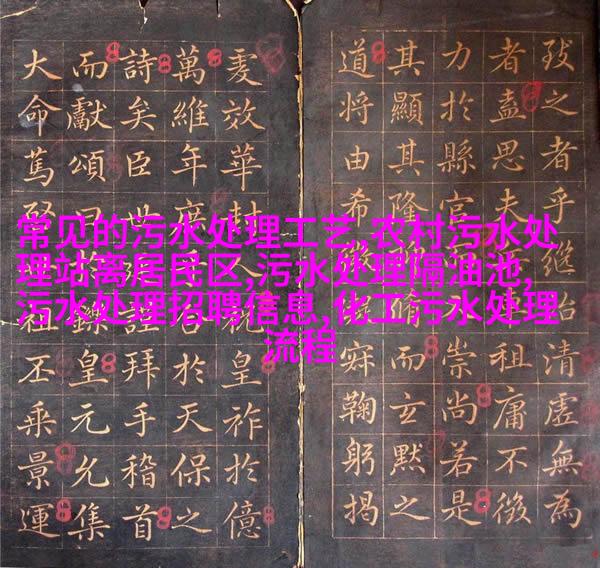 常见的污水处理工艺,农村污水处
理站离居民区,污水处理隔油池,
污水处理招聘信息,化工污水处理
流程
之者乎清虛無為
者盍思夫祖庸不
力於縣官崇尚若是
其顯其隆而玄默之
道將由希鞠躬揭
效華封祝皇祚於億
萬維年於天保之
詩矣臣世拜手稽首
而獻頌曰鑠皇元允集
大命篤丕乘景運